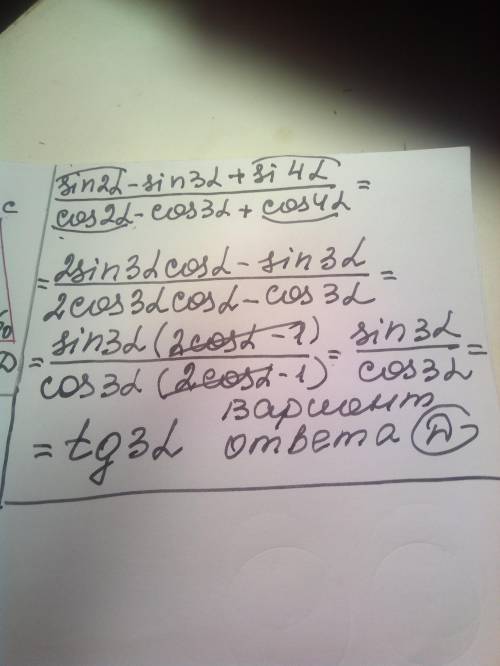 c
sin2α - sin3α + si 4α
cos2α - cos3α + cos4α =
= 2sin3αcosα - sin3α
2cos3αcosα - cos3α =
D = sin3α (2cosα - 1) = sin3α
cos3α (2cosα - 1) cos3α =
= tg3α вариант
ответа Д